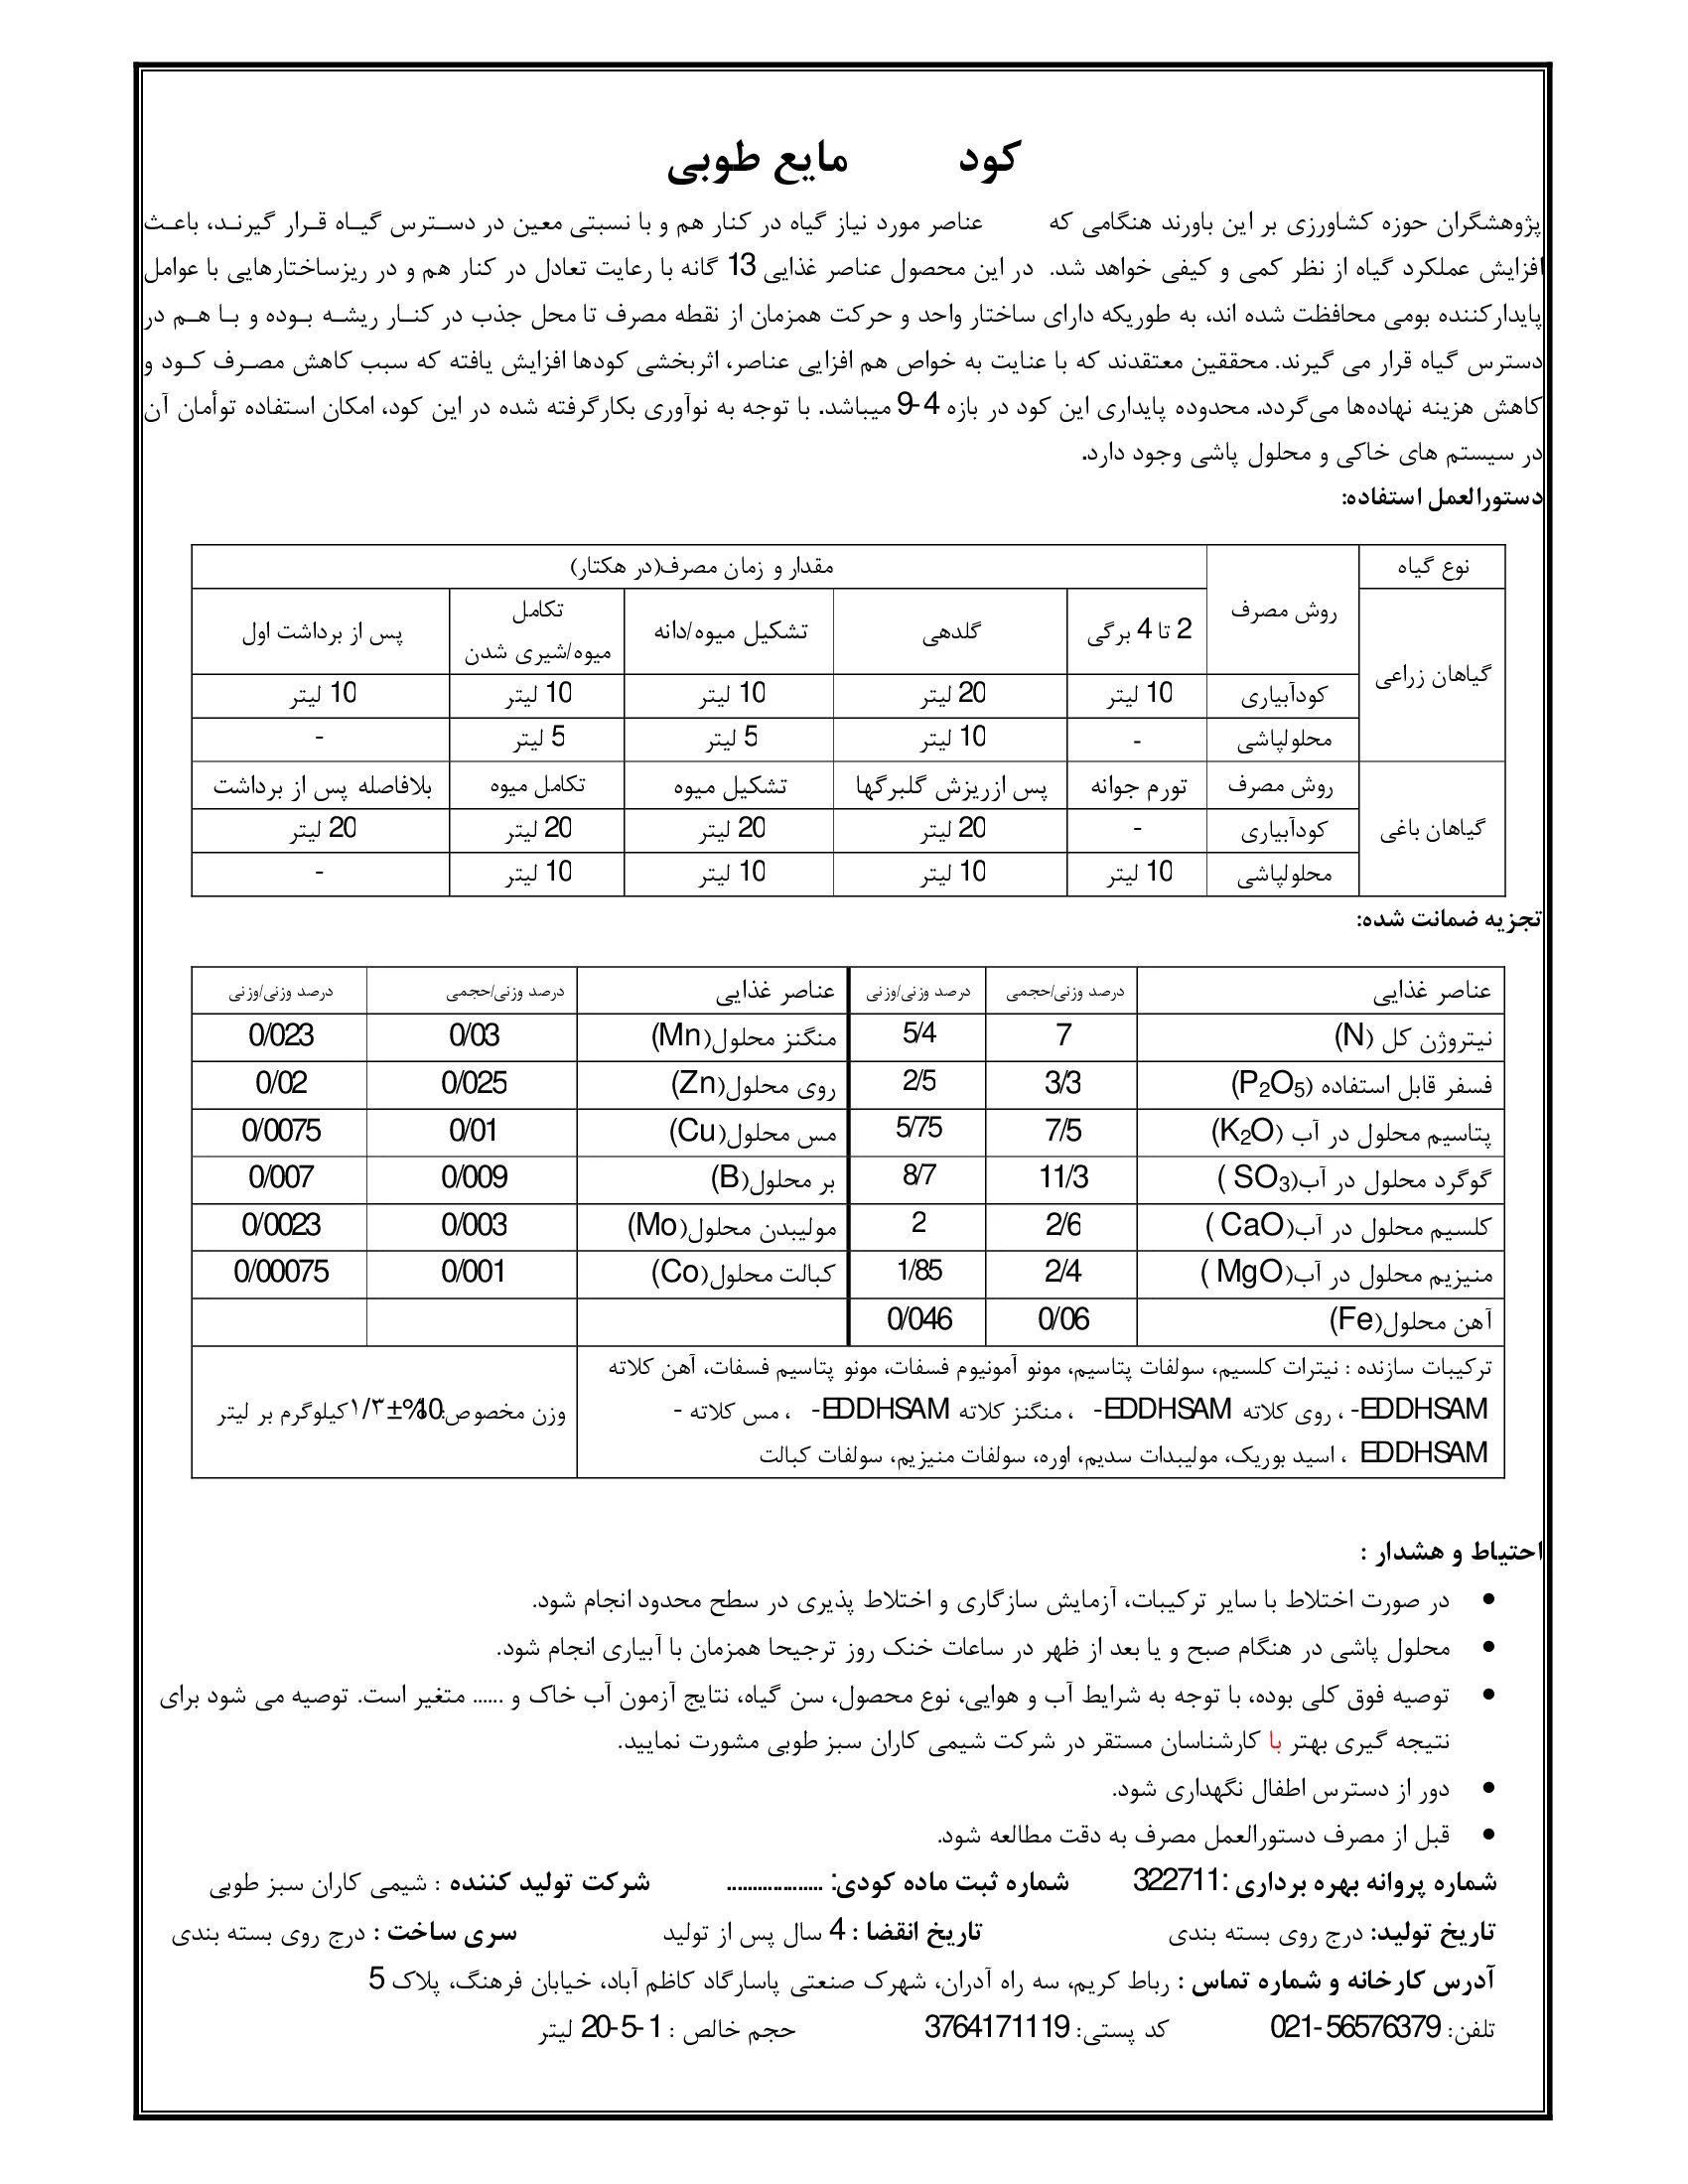 کود مایع طوبی
پژوهشگران حوزه کشاورزی بر این باورند هنگامی که عناصر مورد نیاز گیاه در کنار هم و با نسبتی معین در دسترس گیاه قرار گیرند، باعث
افزایش عملکرد گیاه از نظر کمی و کیفی خواهد شد. در این محصول عناصر غذایی 13 گانه با رعایت تعادل در کنار هم و در ریزساختارهایی با عوامل
پایدارکننده بومی محافظت شده اند، به طوریکه دارای ساختار واحد و حرکت همزمان از نقطه مصرف تا محل جذب در کنار ریشه بوده و با هم در
دسترس گیاه قرار می گیرند. محققین معتقدند که با عنایت به خواص هم افزایی عناصر، اثربخشی کودها افزایش یافته که سبب کاهش مصرف کود و
کاهش هزینه نهاده‌ها می‌گردد. محدوده پایداری این کود در بازه 4-9 میباشد. با توجه به نوآوری بکارگرفته شده در این کود، امکان استفاده توأمان آن
در سیستم های خاکی و محلول پاشی وجود دارد.
دستورالعمل استفاده:
نوع گیاه روش مصرف مقدار و زمان مصرف(در هکتار)
گیاهان زراعی 2 تا 4 برگی گلدهی تشکیل میوه/دانه تکامل میوه/شیری شدن پس از برداشت اول
کودآبیاری 10 لیتر 20 لیتر 10 لیتر 10 لیتر 10 لیتر
محلولپاشی - 10 لیتر 5 لیتر 5 لیتر -
گیاهان باغی روش مصرف تورم جوانه پس ازریزش گلبرگها تشکیل میوه تکامل میوه بلافاصله پس از برداشت
کودآبیاری - 20 لیتر 20 لیتر 20 لیتر 20 لیتر
محلولپاشی 10 لیتر 10 لیتر 10 لیتر 10 لیتر -
تجزیه ضمانت شده:
عناصر غذایی درصد وزنی/حجمی درصد وزنی/وزنی عناصر غذایی درصد وزنی/حجمی درصد وزنی/وزنی
نیتروژن کل (N) 7 5/4 منگنز محلول(Mn) 0/03 0/023
فسفر قابل استفاده (P2O5) 3/3 2/5 روی محلول(Zn) 0/025 0/02
پتاسیم محلول در آب (K2O) 7/5 5/75 مس محلول(Cu) 0/01 0/0075
گوگرد محلول در آب(SO3 ) 11/3 8/7 بر محلول(B) 0/009 0/007
کلسیم محلول در آب(CaO ) 2/6 2 مولیبدن محلول(Mo) 0/003 0/0023
منیزیم محلول در آب(MgO ) 2/4 1/85 کبالت محلول(Co) 0/001 0/00075
آهن محلول(Fe) 0/06 0/046
ترکیبات سازنده : نیترات کلسیم، سولفات پتاسیم، مونو آمونیوم فسفات، مونو پتاسیم فسفات، آهن کلاته
-EDDHSAM ، روی کلاته -EDDHSAM ، منگنز کلاته -EDDHSAM ، مس کلاته -
EDDHSAM ، اسید بوریک، مولیبدات سدیم، اوره، سولفات منیزیم، سولفات کبالت
وزن مخصوص:10%±۱/۳کیلوگرم بر لیتر
احتیاط و هشدار :
• در صورت اختلاط با سایر ترکیبات، آزمایش سازگاری و اختلاط پذیری در سطح محدود انجام شود.
• محلول پاشی در هنگام صبح و یا بعد از ظهر در ساعات خنک روز ترجیحا همزمان با آبیاری انجام شود.
• توصیه فوق کلی بوده، با توجه به شرایط آب و هوایی، نوع محصول، سن گیاه، نتایج آزمون آب خاک و ...... متغیر است. توصیه می شود برای
نتیجه گیری بهتر با کارشناسان مستقر در شرکت شیمی کاران سبز طوبی مشورت نمایید.
• دور از دسترس اطفال نگهداری شود.
• قبل از مصرف دستورالعمل مصرف به دقت مطالعه شود.
شماره پروانه بهره برداری :322711 شماره ثبت ماده کودی: ................... شرکت تولید کننده : شیمی کاران سبز طوبی
تاریخ تولید: درج روی بسته بندی تاریخ انقضا : 4 سال پس از تولید سری ساخت : درج روی بسته بندی
آدرس کارخانه و شماره تماس : رباط کریم، سه راه آدران، شهرک صنعتی پاسارگاد کاظم آباد، خیابان فرهنگ، پلاک 5
تلفن: 021-56576379 کد پستی: 3764171119 حجم خالص : 1-5-20 لیتر